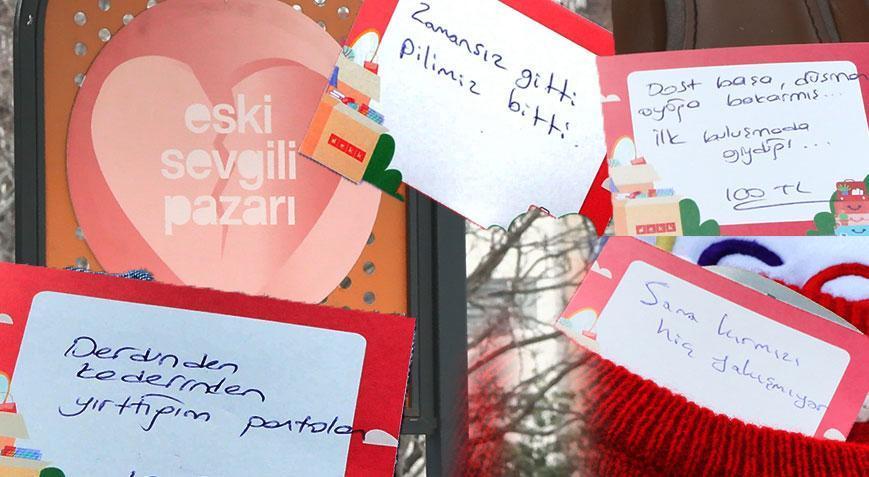 eski
sevgili
pazarı
Zamansız gitti
pilimiz bitti.
Dost başa, düşman
ayağa bakarmış...
İlk buluşmada
giydiği...
100 TL
dekk
dekk
Derdinden
kederinden
yırttığım pantolon
Sana kırmızı
hiç yakışmıyor